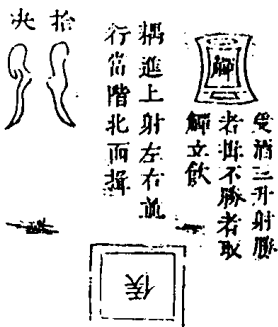 觶
受酒三升射勝
者揖不勝者取
觶立飲
耦進上射左右並
行當階北面揖
拾
决
侯